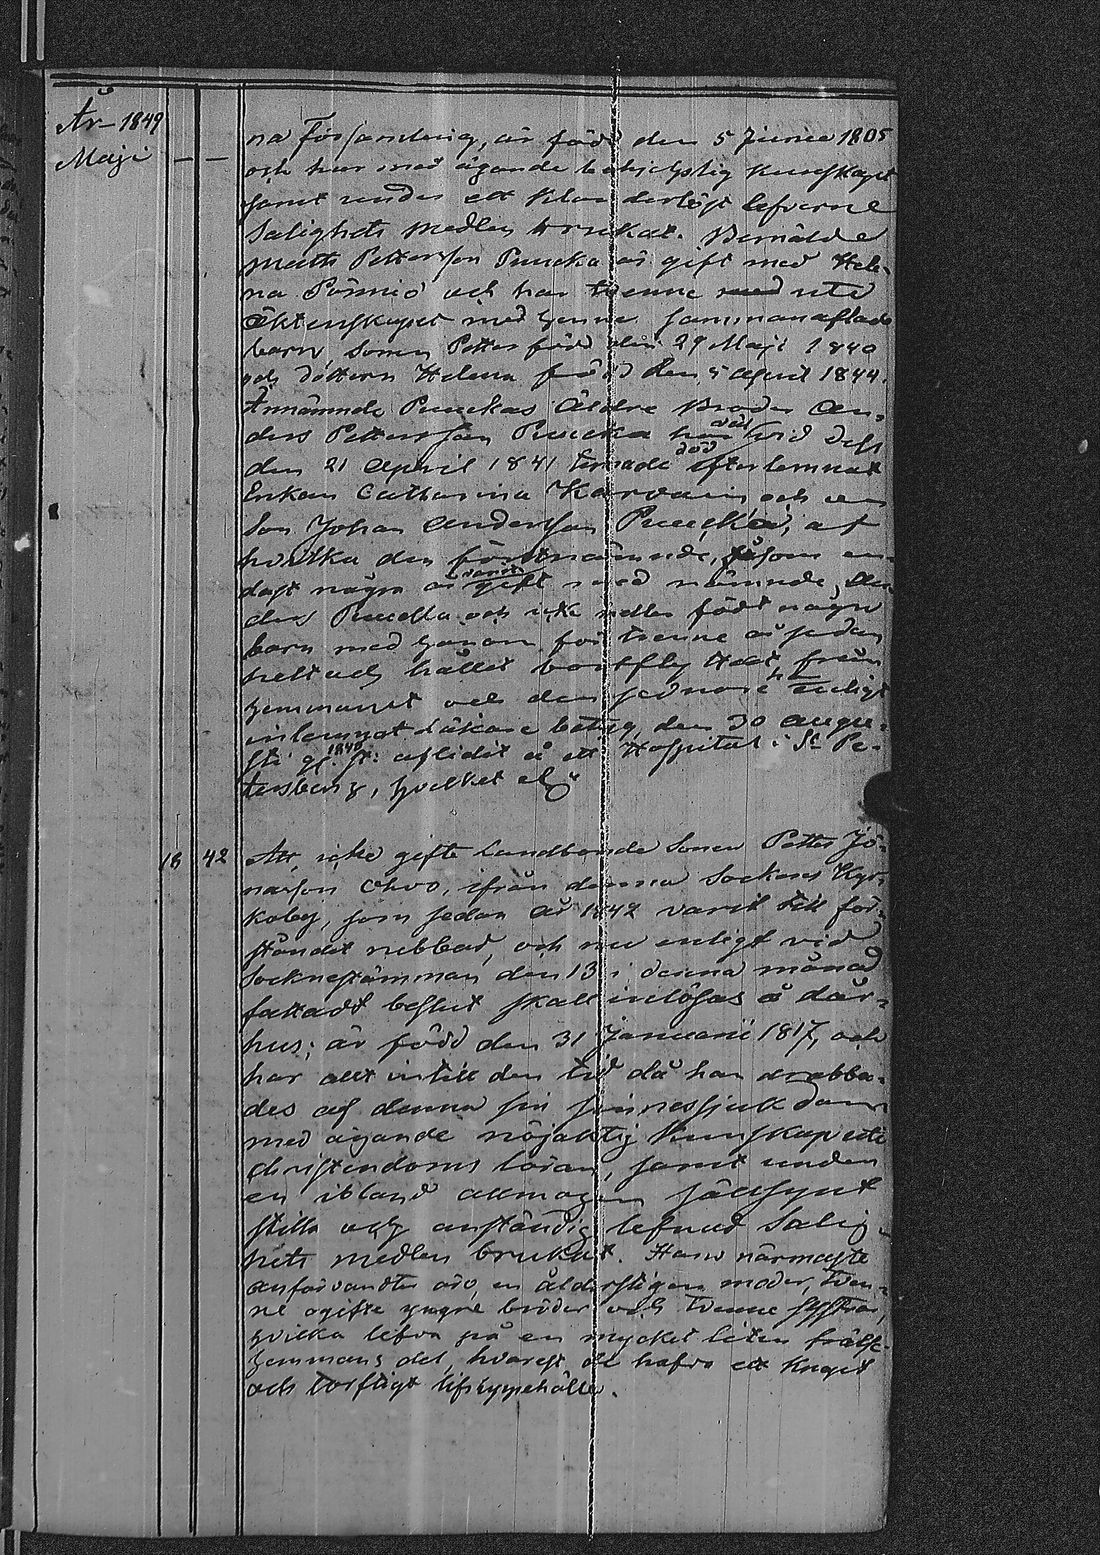 År 1849
Maji — —
na Församling, är född den 5 Junii 1805
och har med ägande behjelplig kunskaper
samt under ett klanderlöst lefverne
Salighets medlen brukat. Bemälde
Matts Pettersson Puucka är gift med Hele-
na Pörmiö och har tvenne med uti
Äktenskapet med henne sammanaflade
barn, sonen Petter född den 29 Maji 1840
och dottern Helena född den 5 April 1844.
Ännämnde Puuckas Äldre Broder An-
ders Pettersson Puucka har vid dess
den 21 April 1841 timade död efterlemnat
Enkan Catharina Karvain och en
Son Johan Andersson Puucka, af
hvilka den förstnämnde, såsom en-
dast några år varit gift med nämnde An-
ders Puucka och icke heller födt några
barn med honom för tvenne år sedan
helt och hållet bortflyttat från
hemmanet och den sednare enligt
inlemnat läkare betyg den 30 Augu-
sti 1848 aflidit å ett Hospital i St Pe-
tersburg, hvilket
18 42 Att, icke gifte landbonde Sonen Petter Jo-
nasson Ohvo, ifrån denna Sockens Kyr-
koby, som sedan år 1842 varit till för-
ståndet rubbad, och nu enligt vid
Socknestämman den 13 i denna månad
fattadt beslut skall inlösas å dår-
hus; är född den 31 Januarii 1817, och
har allt intill den tid då han drabba-
des af denna sin sinnessjukdom
med ägande nöjaktig kunskap uti
christendoms läran, samt under
en ibland allmogen sällsynt
stilla och anständig lefnad Salig-
hets medlen brukat. Hans närmaste
anförvandter äro, en ålderstigen moder, tven-
ne ogifte yngre bröder och tvenne systrar,
hvilka lefva på en mycket liten frälse-
hemmans del, hvarest de hafva ett knapt
och torftigt lifsuppehälle.